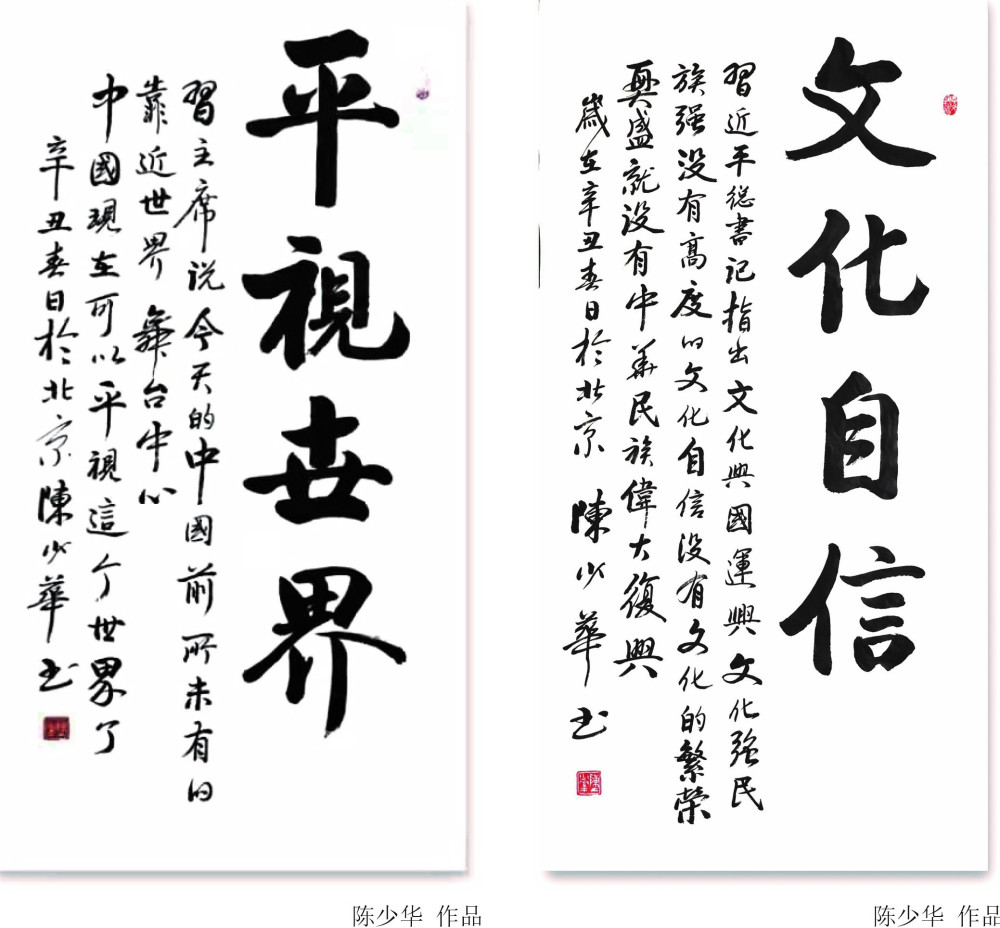 平視世界
習主席说今天的中國前所未有的
靠近世界舞台中心
中國現在可以平視這个世界了
辛丑春日於北京陳少華书
陈少华 作品
文化自信
習近平總書记指出文化興國運興文化强民
族强没有高度的文化自信没有文化的繁榮
興盛就没有中華民族偉大復興
歲在辛丑春日於北京 陳少華书
陈少华 作品